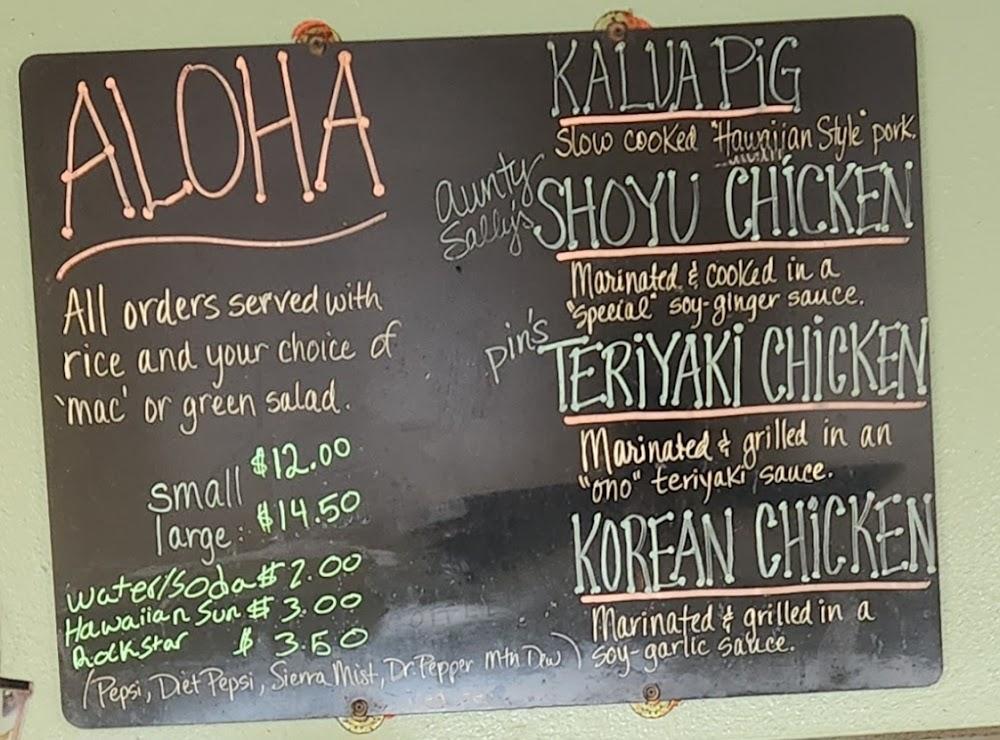 ALOHA
All orders served with
rice and your choice of
'mac' or green salad.
small $12.00
large: $14.50
water/soda $2.00
Hawaiian Sun $3.00
Rockstar $3.50
(Pepsi, Diet Pepsi, Sierra Mist, Dr. Pepper Mtn Dew)
KALUA PiG
Slow cooked "Hawaiian Style" pork.
aunty
Sally's
SHOYU CHiCKEN
Marinated & cooked in a
"special" soy-ginger sauce.
pin's
TERiYAKi CHiCKEN
Marinated & grilled in an
"ono" teriyaki sauce.
KOREAN CHiCKEN
Marinated & grilled in a
soy-garlic sauce.